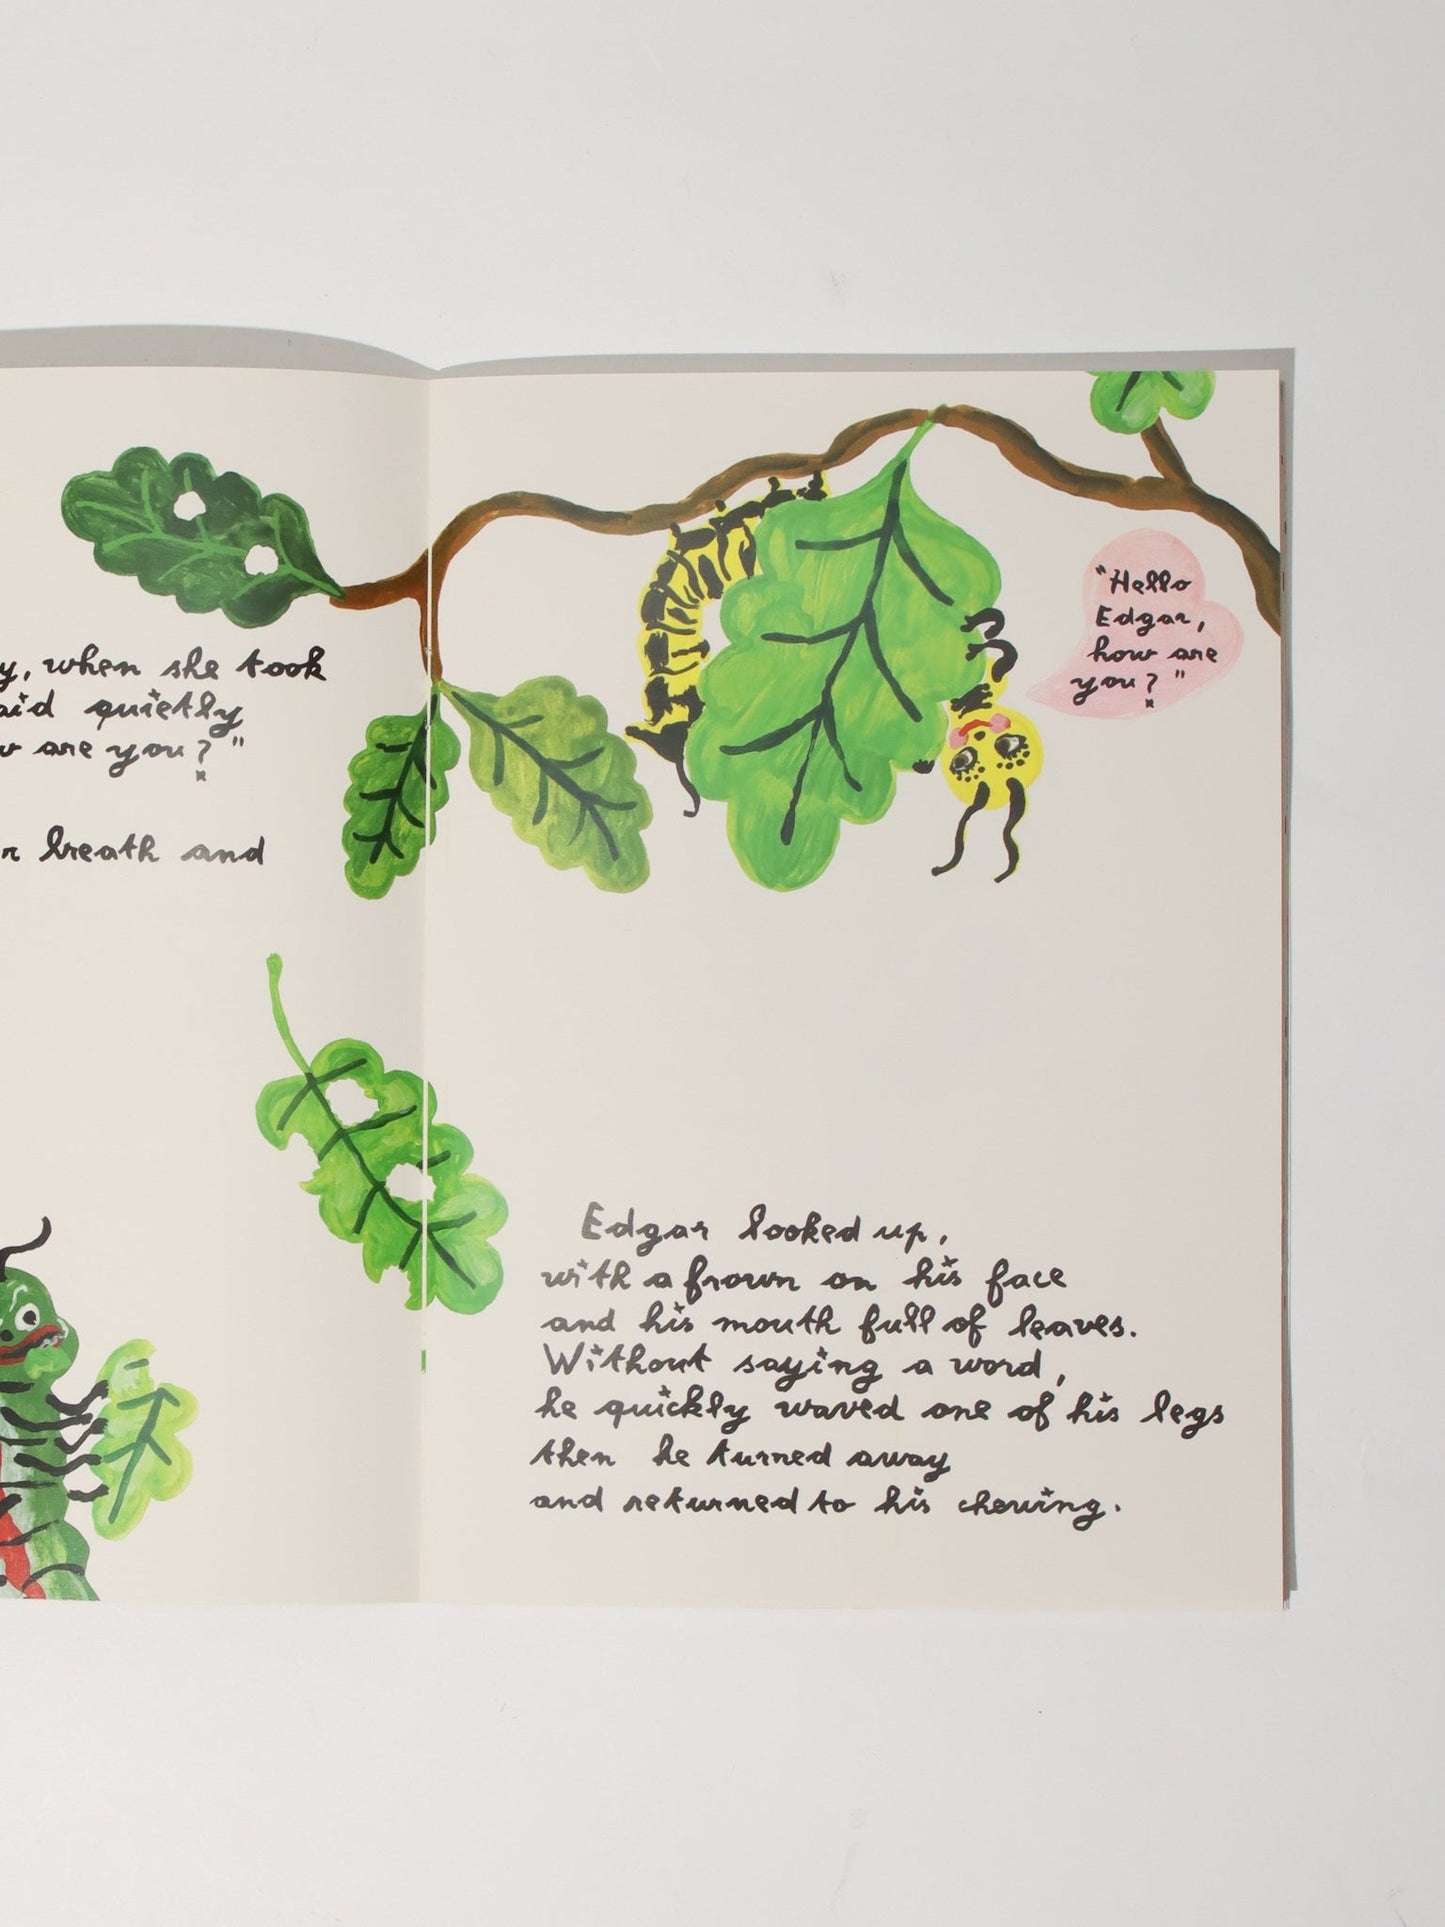 when she took
quietly
are you?"
breath and
"Hello
Edgar,
how are
you?"
Edgar looked up,
with a frown on his face
and his mouth full of leaves.
Without saying a word,
he quickly waved one of his legs
then he turned away
and returned to his chewing.